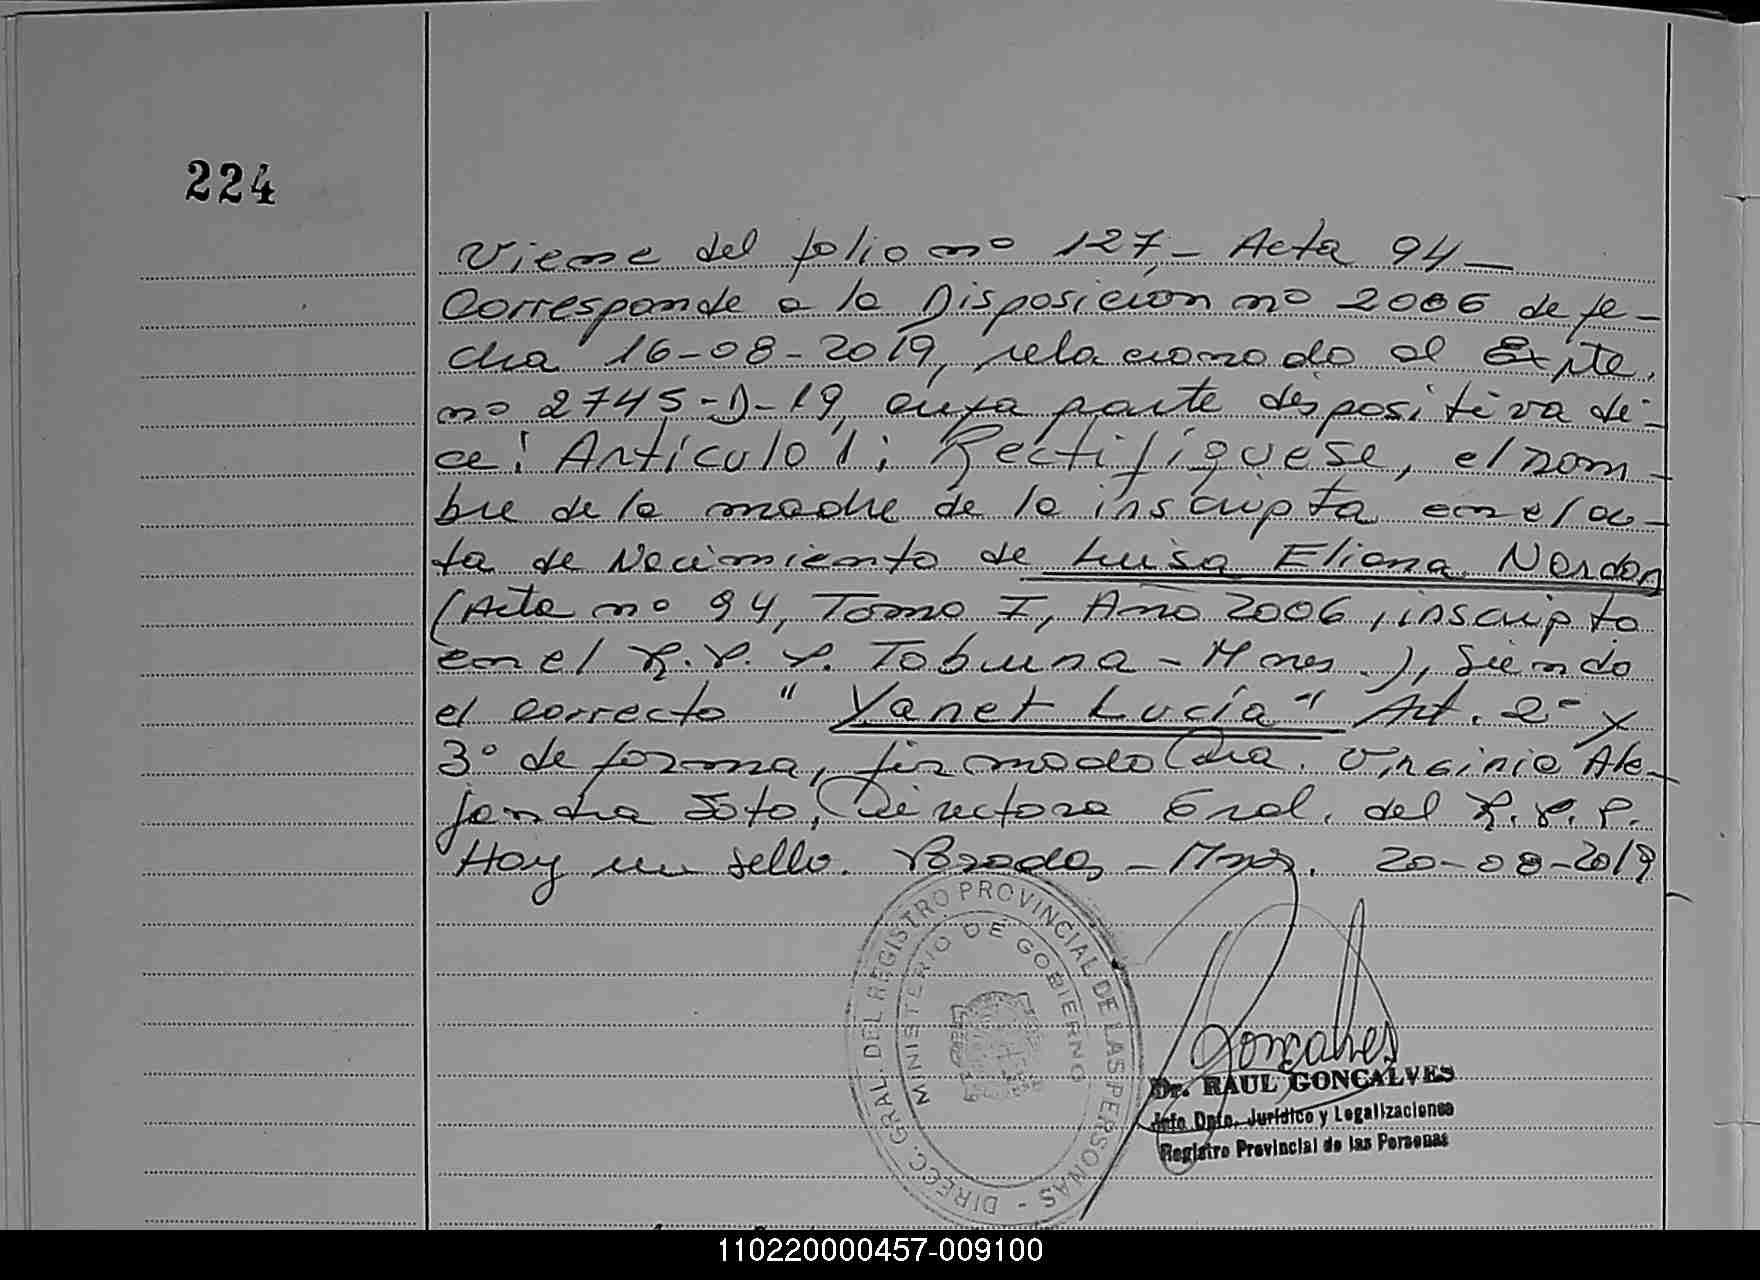 224
Viene del folio nº 127,- Acta 94 -
Corresponde a la Disposicion nº 2006 de fe-
cha 16-08-2019, relacionado al Expte.
nº 2745-D-19, cuya parte dispositiva di-
ce: Artículo 1: Rectifíquese, el nom-
bre de la madre de la inscripta en el ac-
ta de Nacimiento de Luisa Eliana Nardon
(Acta nº 94, Tomo I, Año 2006, inscripta
en el R.P.P. Tobuna - Mnes.), siendo
el correcto "Yanet Lucía" Art. 2º y
3º de forma, firmado Dra. Virginia Ale-
jandra Soto, Directora Gral. del R.P.P.
Hay un sello. Posadas, - Mnes. 20-08-2019
DIRECC. GRAL. DEL REGISTRO PROVINCIAL DE LAS PERSONAS -
MINISTERIO DE GOBIERNO
Goncalves
Dr. RAUL GONCALVES
Jefe Dpto. Jurídico y Legalizaciones
Registro Provincial de las Personas
110220000457-009100